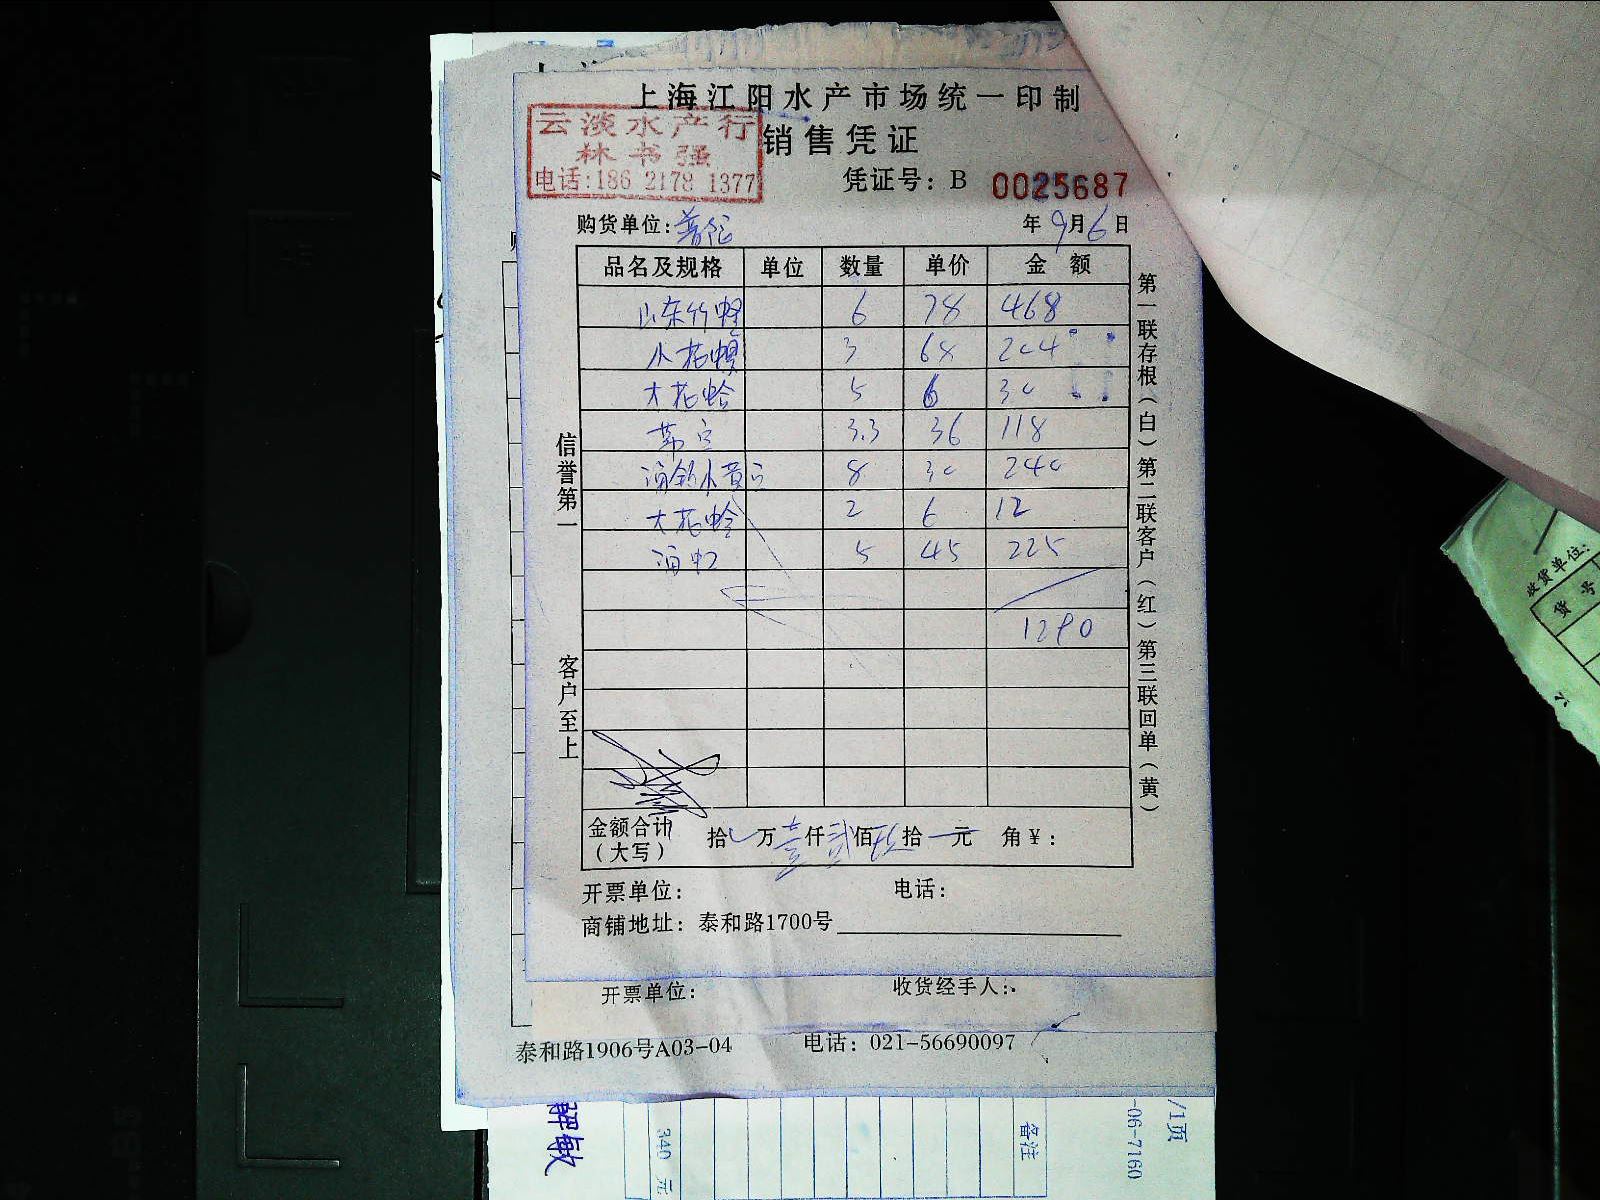 上海江阳水产市场统一印制
云淡水产行
林书强
电话:186 2178 1377
销售凭证
凭证号: B 0025687
购货单位:
年 9月6日
品名及规格 单位 数量 单价 金 额
山东竹蛏 6 78 468
小花螺 3 68 204
大花蛤 5 6 30
3.3 36 118
8 30 240
大花蛤 2 6 12
5 45 225
1290
金额合计 拾 万壹仟贰佰玖拾 元 角¥:
(大写)
开票单位: 电话:
商铺地址: 泰和路1700号
信誉第一
客户至上
第一联存根(白)第二联客户(红)第三联回单(黄)
开票单位: 收货经手人:
泰和路1906号A03-04 电话: 021-56690097
收货单位:
货 号
解敏
340 元
备注
-06-7160
/1页